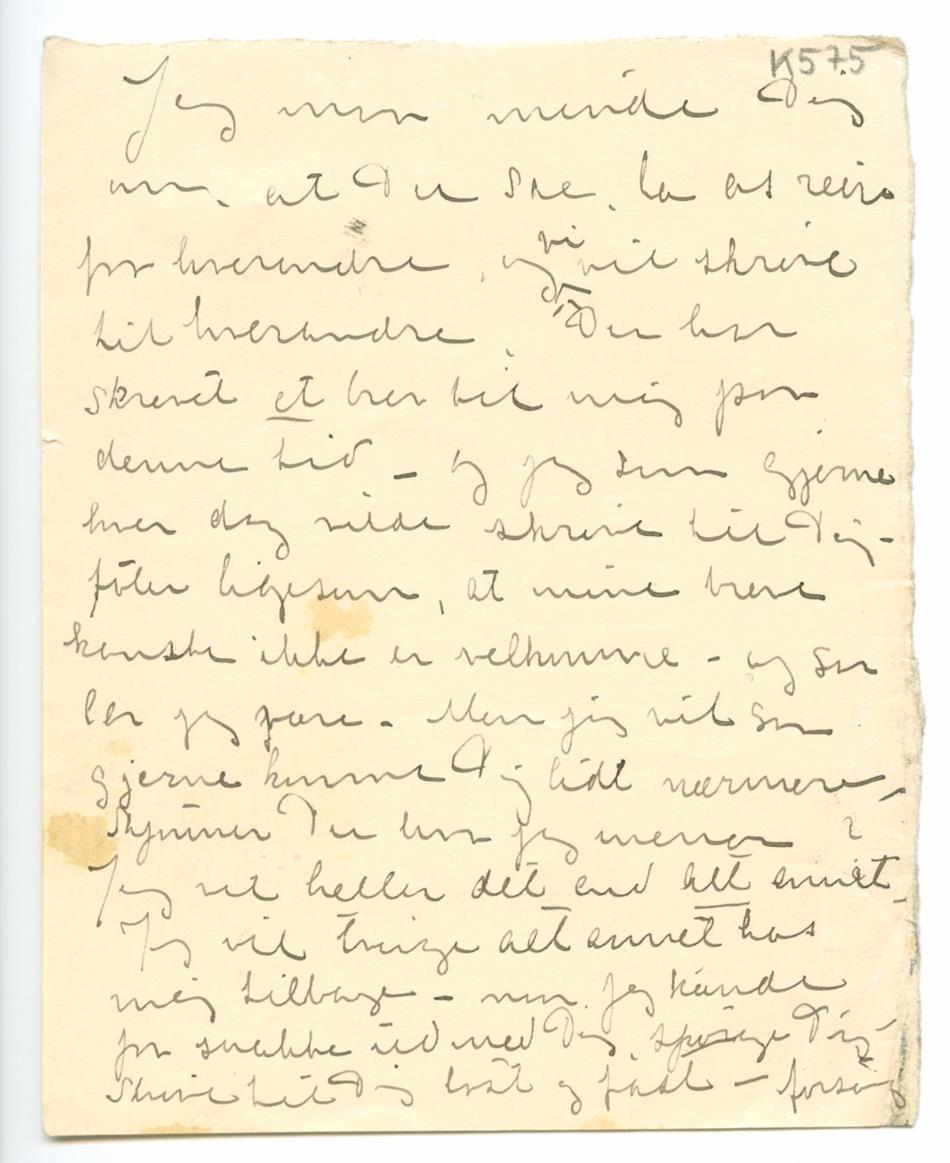 K575
Jeg maa minde Dig
om, at Du sae, la os være
for hverandre, og vi vil skrive
til hverandre, Du har
skrevet et brev til mig paa
denne tid – og jeg som gjerne
hver dag vilde skrive til Dig –
føler ligesom, at mine breve
kanske ikke er velkomne – og saa
lar jeg være – Men jeg vil saa
gjerne komme Dig lidt nærmere,
Skjønner Du hva jeg mener ?
Jeg vil heller det end alt annet,
Jeg vil tvinge alt annet hos
mig tilbage – naar jeg kunde
faa snakke ud med Dig, spørge Dig
Skrive til Dig løst og fast – forsøg